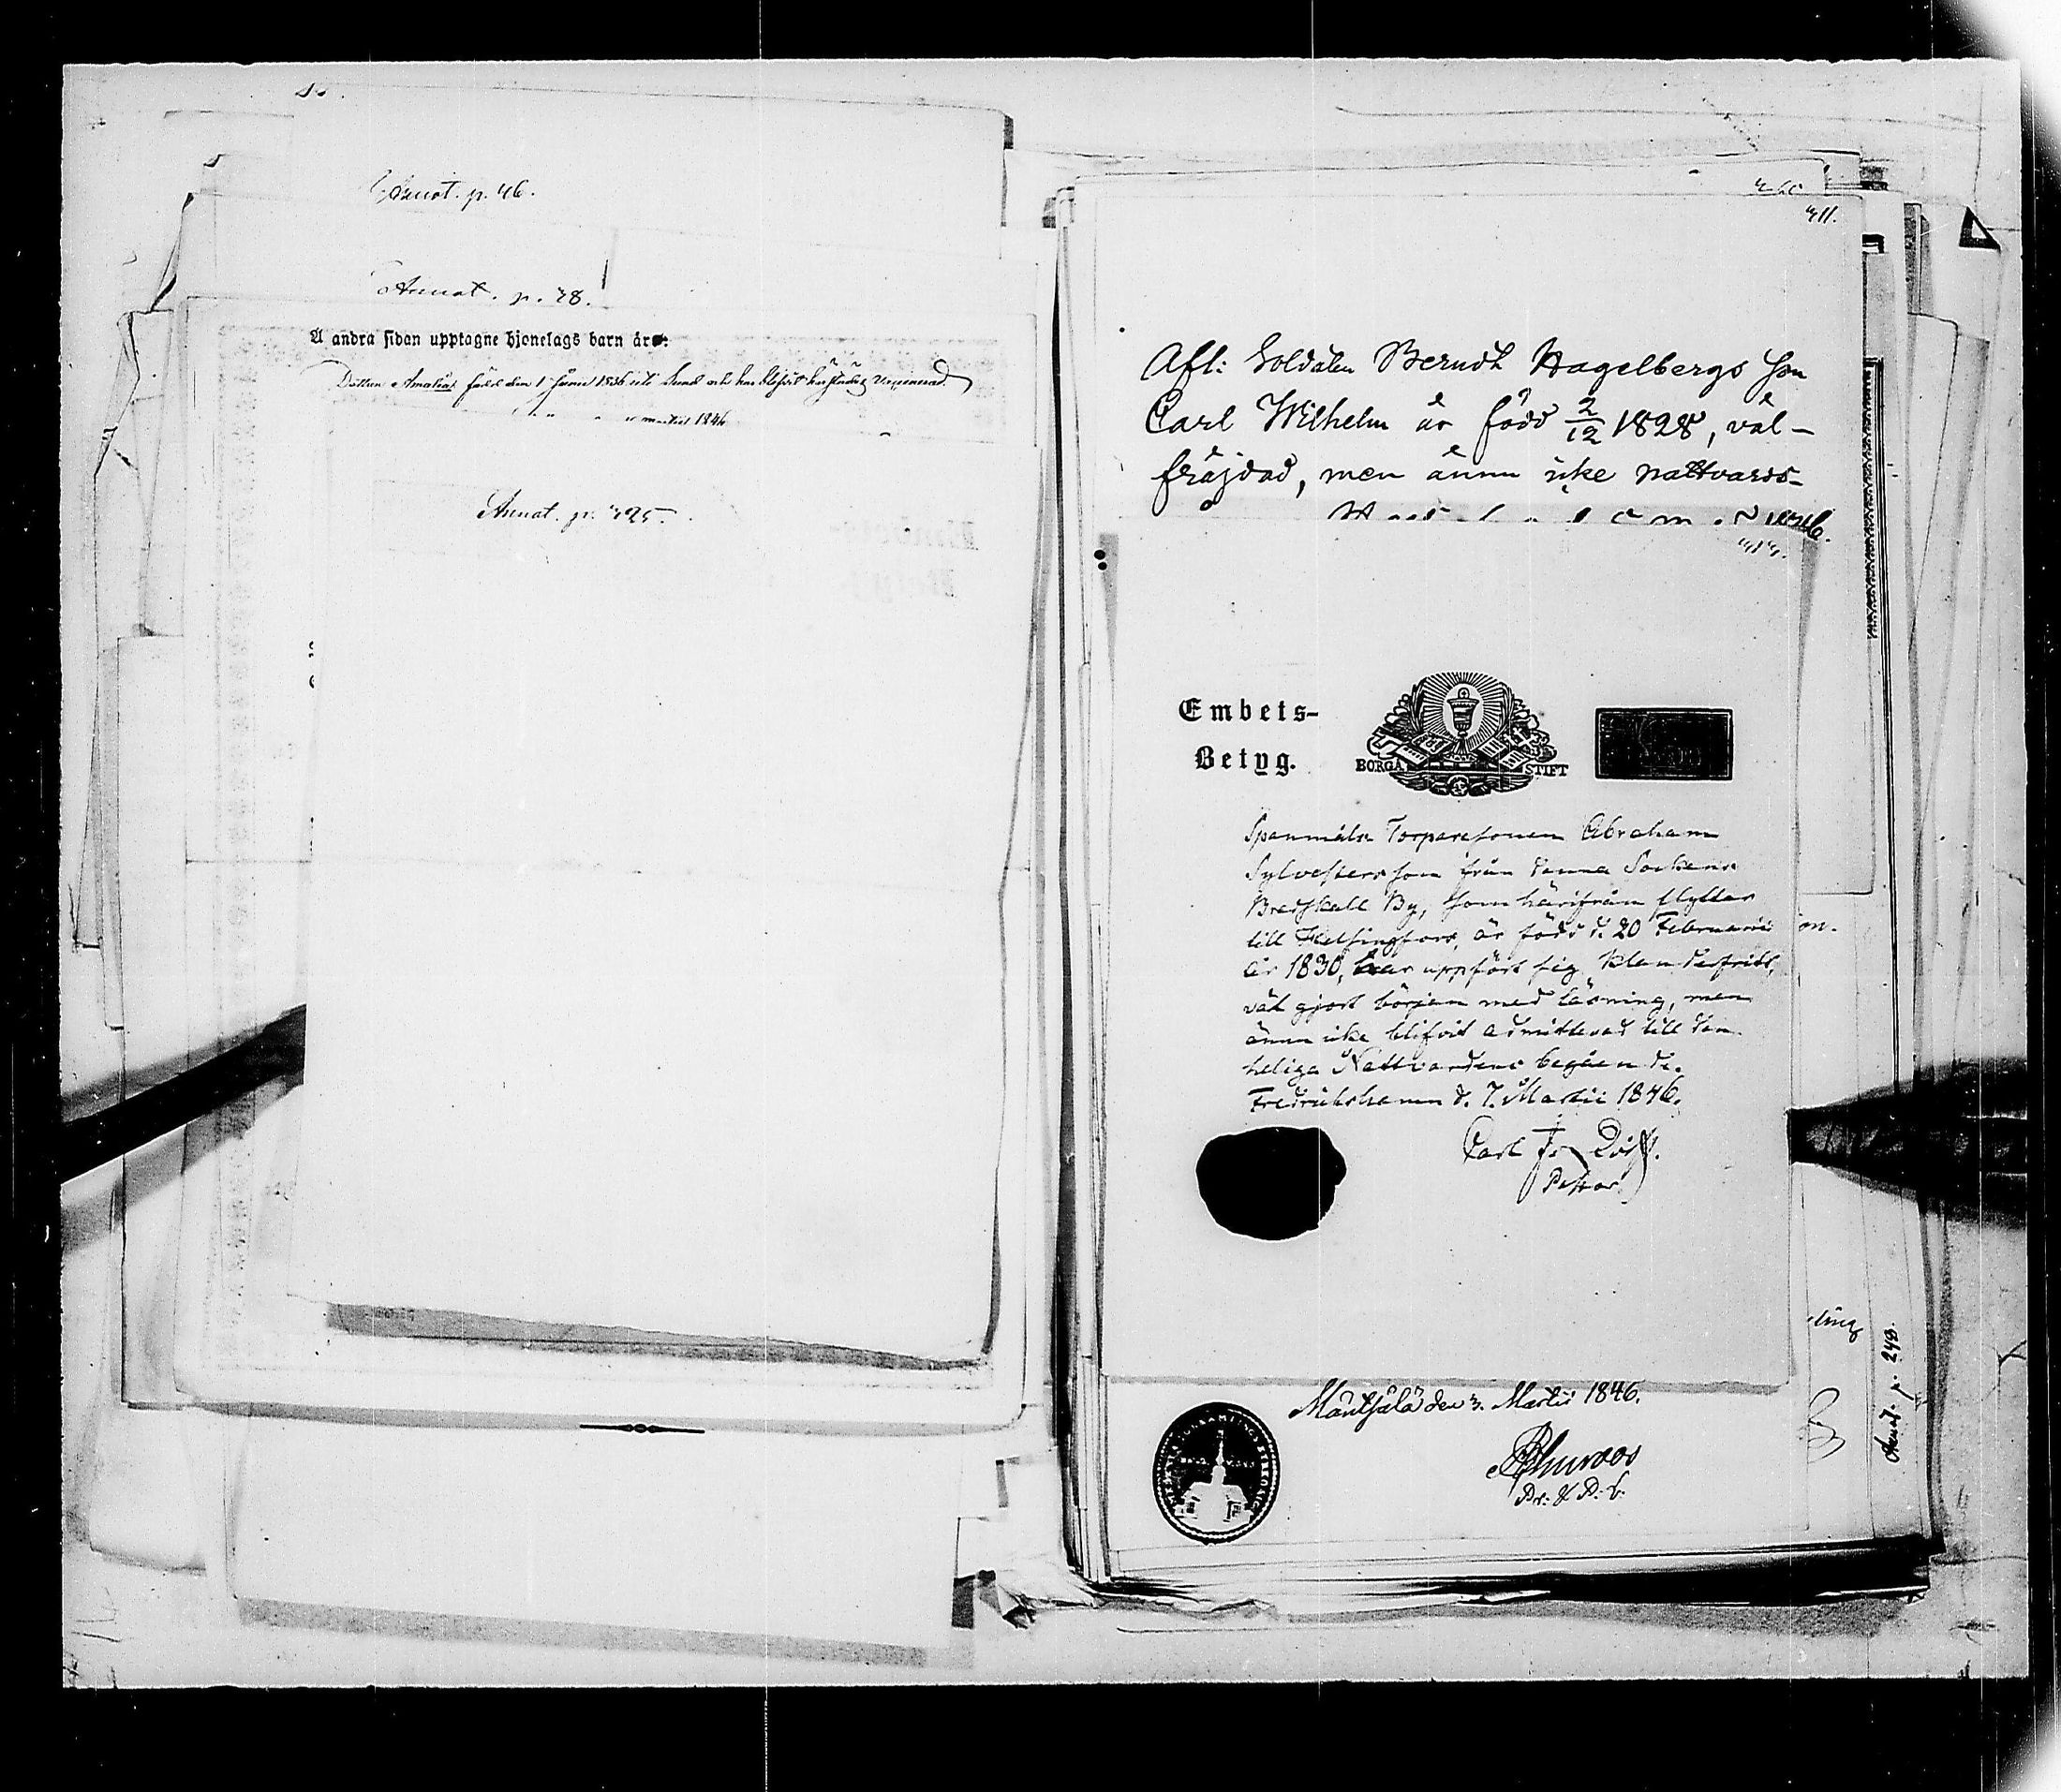 Annot. p. 46.
Annot. p. 78.
Å andra sidan upptagne hjonelags barn äro:
Dottren Amalia, född den 1 Junii 1836 uti Lund och har blifvit härstädes vaccinerad.
1846
Annot. p. 425.
411.
Afl: Soldaten Berndt Hagelbergs son
Carl Wilhelm är född 2/12 1828, väl-
fräjdad, men ännu icke nattvards-
1846.
Embets-
Betyg.
BORGÅ STIFT
Spanmåls Torparesonen Abraham
Sylvestersson från denna Sockens
By, som härifrån flyttar
till Helsingfors, är född d. 20 Februarii
år 1830, har uppfört sig klanderfritt,
väl gjort början med läsning, men
ännu icke blifvit admitterad till den
heliga Nattvardens begående.
Fredrikshamn d. 7. Martii 1846.
Carl Fr.
Pastor
on.
ling
Annot. p. 248.
Mäntsälä den 3. Martii 1846.